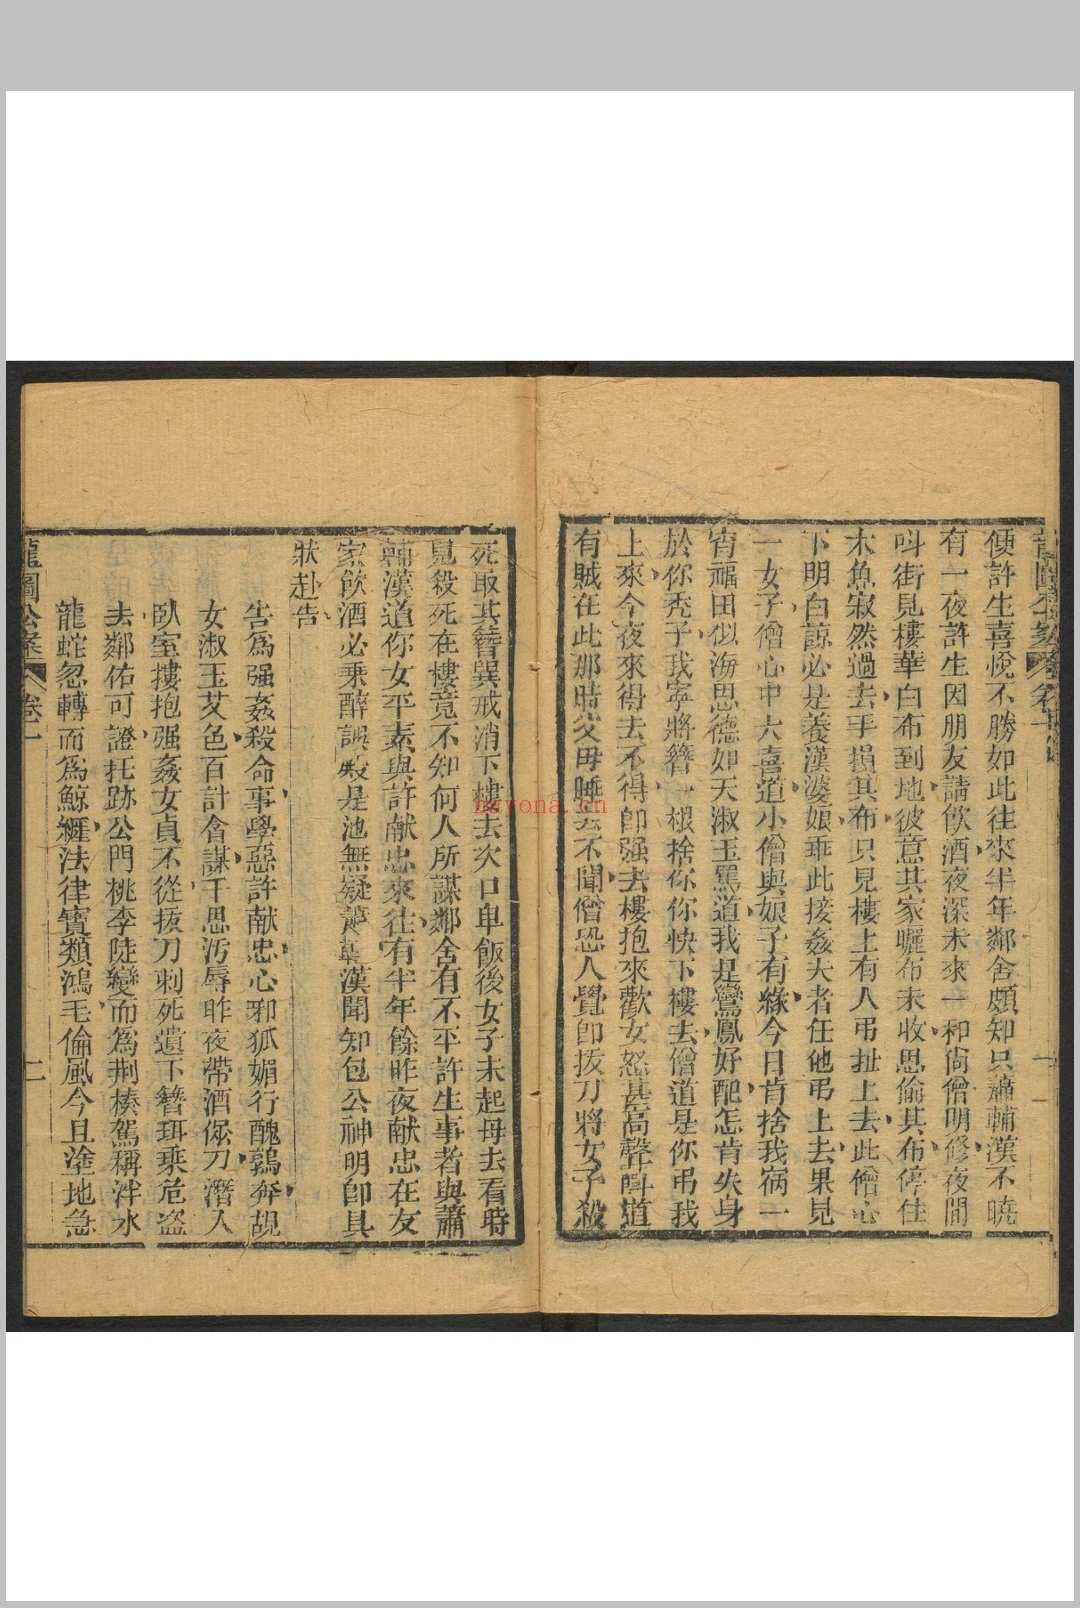 便許生喜悅不勝如此往來半年鄰舍頗知只蕭輔漢不曉
有一夜許生因朋友請飲酒夜深未來一和尙僧明修夜間
叫街見樓華白布到地彼意其家曬布未收思偷其布停住
木魚寂然過去手損其布只見樓上有人弔扯上去此僧心
下明白諒必是養漢婆娘乖此接姦夫者任他弔上去果見
一女子僧心中大喜道小僧與娘子有緣今日肯捨我宿一
宵福田似海恩德如天淑玉罵道我是鸞鳳好配怎肯失身
於你秃子我寧將簪一根捨你你快下樓去僧道是你弔我
上來今夜來得去不得卽强去摟抱來歡女怒甚高聲叫道
有賊在此那時父母睡去不聞僧恐人覺卽拔刀將女子殺
死取其簪珥戒消下樓去次日早飯後女子未起母去看時
見殺死在樓竟不知何人所謀鄰舍有不平許生事者與蕭
輔漢道你女平素與許献忠來往有半年餘昨夜献忠在友
家飲酒必乘醉誤殺是他無疑蕭輔漢聞知包公神明卽具
狀赴告
告爲强姦殺命事學惡許献忠心邪狐媚行醜鶉奔覘
女淑玉艾色百計會謀千思汚辱昨夜帶酒佩刀潛入
臥室摟抱强姦女貞不從拔刀刺死遺下簪珥乘危盜
去鄰佑可證托跡公門桃李陡變而爲荆榛駕稱泮水
龍蛇忽轉而爲鯨鱷法律實類鴻毛倫風今且塗地急
龍圖公案 卷一 二
huyona.cn